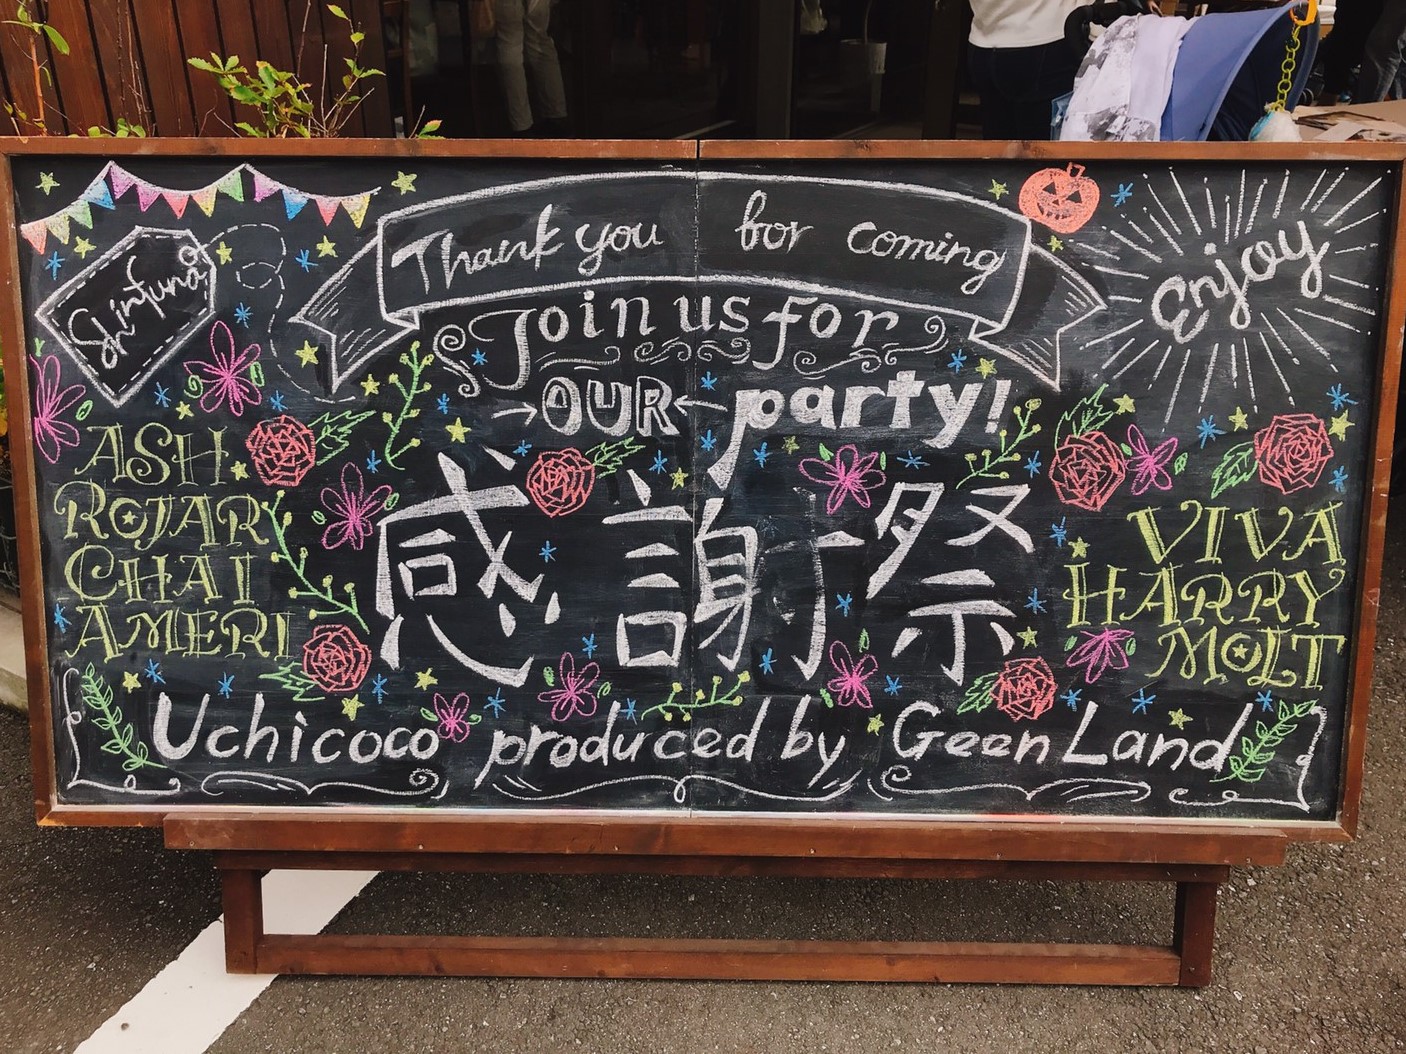 Thank you for coming
Shinfuna
Enjoy
Join us for
OUR party!
感謝祭
ASH
ROJAR
CHAI
AMERI
VIVA
HARRY
MOLT
Uchicoco produced by Geen Land